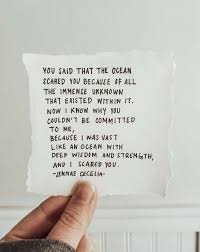 YOU SAID THAT THE OCEAN
SCARED YOU BECAUSE OF ALL
THE IMMENSE UNKNOWN
THAT EXISTED WITHIN IT.
NOW I KNOW WHY YOU
COULDN'T BE COMMITTED
TO ME,
BECAUSE I WAS VAST
LIKE AN OCEAN WITH
DEEP WISDOM AND STRENGTH,
AND I SCARED YOU.
-JENNAE CECELIA-